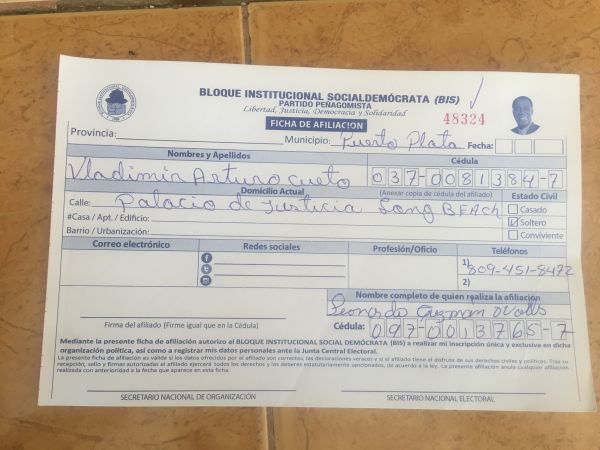 BLOQUE INSTITUCIONAL SOCIALDEMÓCRATA (BIS)
PARTIDO PEÑAGOMISTA
Libertad, Justicia, Democracia y Solidaridad
48324
FICHA DE AFILIACION
Provincia: Municipio: Puerto Plata Fecha:
Nombres y Apellidos Cédula
Vladimir Arturo Cueto 037-0081384-7
Domicilio Actual (Anexar copia de cédula del afiliado) Estado Civil
Calle: Palacio de Justicia Long BEACH Casado
#Casa / Apt. / Edificio: Soltero
Barrio / Urbanización: Conviviente
Correo electrónico Redes sociales Profesión/Oficio Teléfonos
1) 809-451-8472
2)
Nombre completo de quien realiza la afiliación
Leonardo Guzman
Firma del afiliado (Firme igual que en la Cédula) Cédula: 097-0013765-7
Mediante la presente ficha de afiliación autorizo al BLOQUE INSTITUCIONAL SOCIAL DEMÓCRATA (BIS) a realizar mi inscripción única y exclusiva en dicha
organización política, así como a registrar mis datos personales ante la Junta Central Electoral.
La presente ficha de afiliación es válida si los datos ofrecidos por el afiliado son correctos, las declaraciones veraces y si el afiliado tiene el disfrute de sus derechos civiles y políticos. Tras su
recepción, sello y firmas autorizadas el afiliado ejercerá todos los derechos y los deberes estatutariamente sancionados, de acuerdo a la ley. La presente afiliación anula cualquier afiliación
realizada con anterioridad a la fecha que aparece en esta ficha.
SECRETARIO NACIONAL DE ORGANIZACIÓN SECRETARIO NACIONAL ELECTORAL